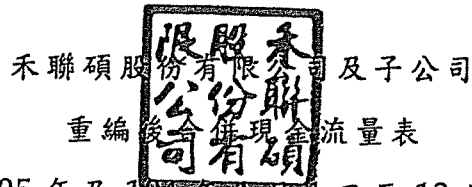 禾聯碩股份有限公司及子公司
重編後合併現金流量表
禾聯碩
股份有
限公司
年及